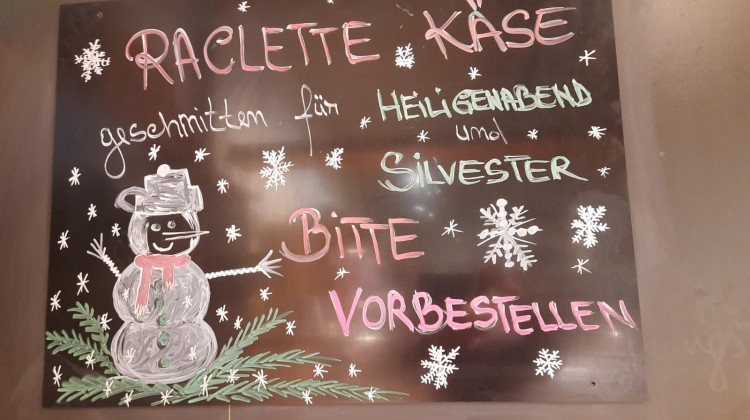 RACLETTE KÄSE
geschnitten für HEILIGENABEND
und
SILVESTER
BITTE
VORBESTELLEN